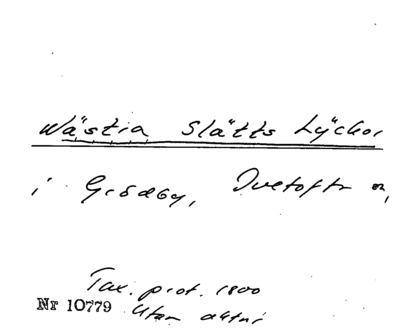 Wästra Slätts Lyckor
i Grödby, Ivetofta sn,
Tax. prot. 1800
Nr 10779 Utan aktnr